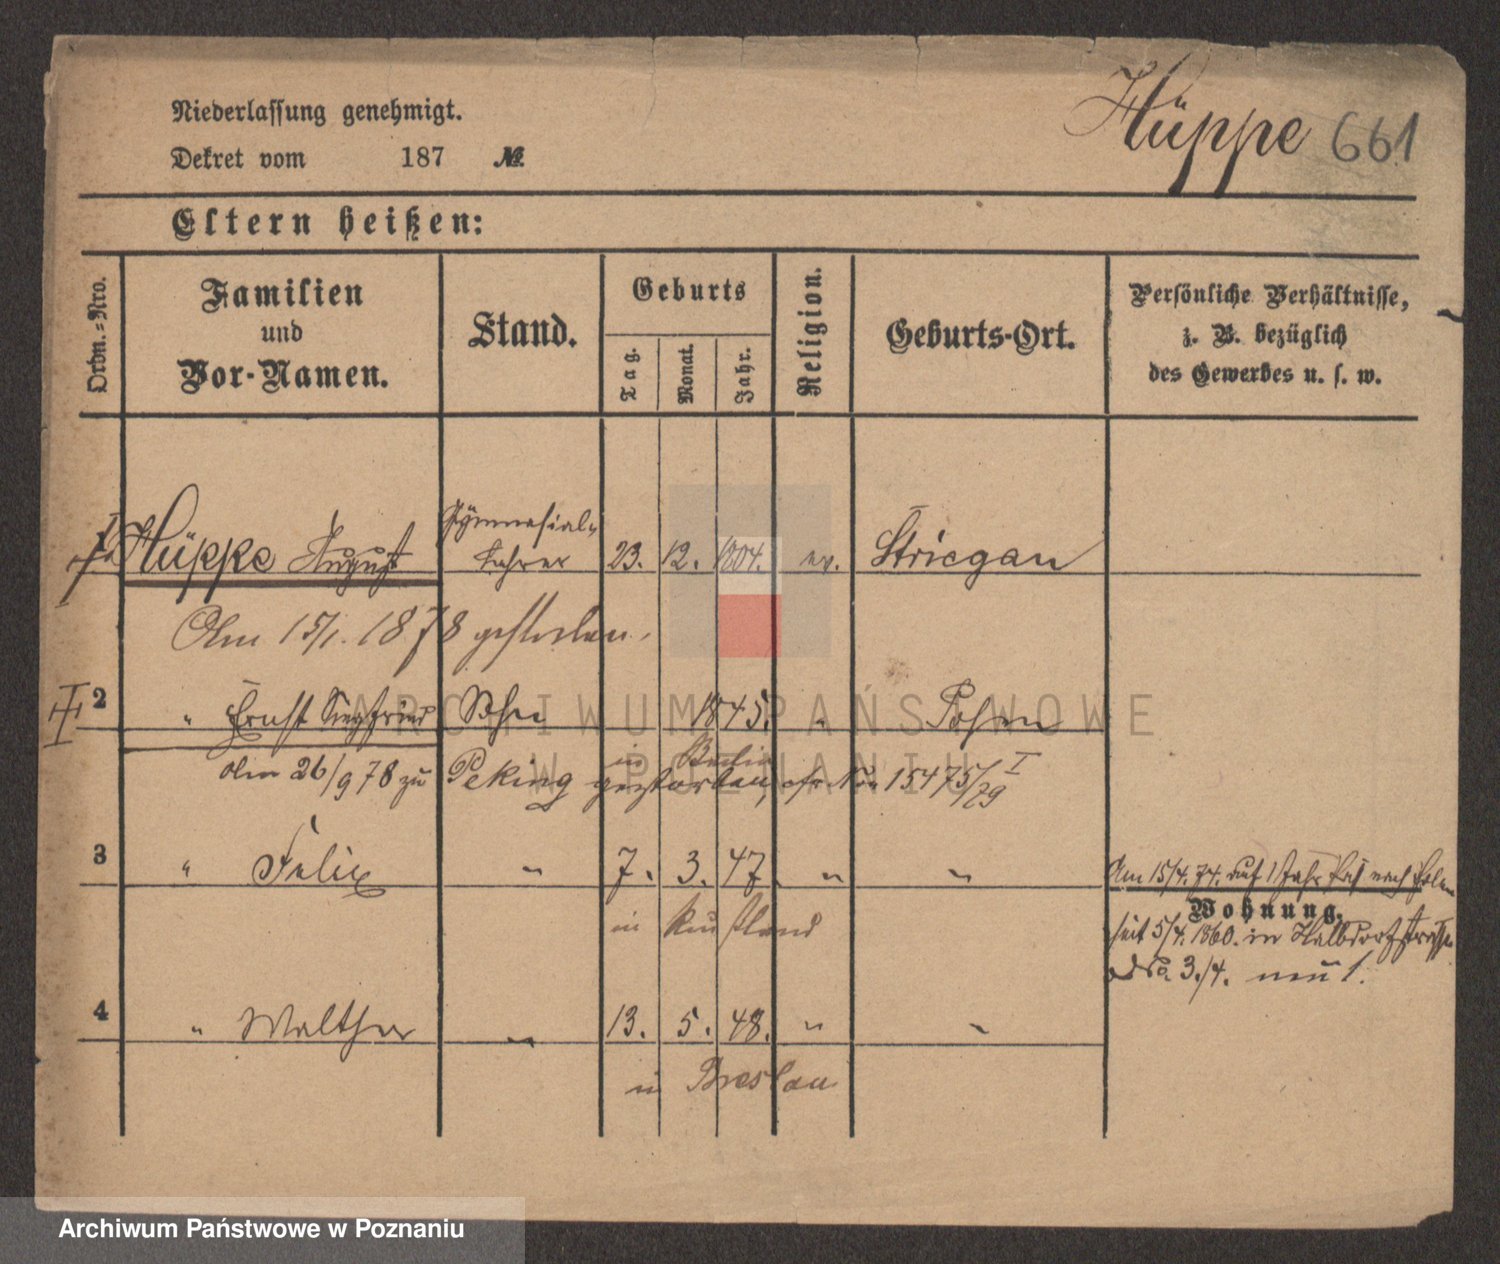 Hüppe 661
Niederlassung genehmigt.
Dekret vom 187 №
Eltern heißen:
Ordn.=Nro.
Familien
und
Vor-Namen.
Stand.
Geburts
Tag.
Monat.
Jahr.
Religion.
Geburts-Ort.
Persönliche Verhältnisse,
z. B. bezüglich
des Gewerbes u. s. w.
Hüppe August Gymnasial-
Lehrer 23. 12. 1804. ev. Striegau
Am 15/1. 1878 gestorben.
2 " Ernst Siegfried Sohn 1845. " Posen
in Berlin
Am 26/9 78 zu Peking gestorben, 15475/79 I
3 " Felix " 7. 3. 47 " "
in Rußland
Am 15/4. 74. auf 1 Jahr Paß nach Polen
Wohnung.
seit 5/4. 1860. in Halbdorfstrasse
No. 3./4. neu 1.
4 " Walther " 13. 5. 48. " "
in Breslau
ARCHIWUM PAŃSTWOWE
W POZNANIU
Archiwum Państwowe w Poznaniu